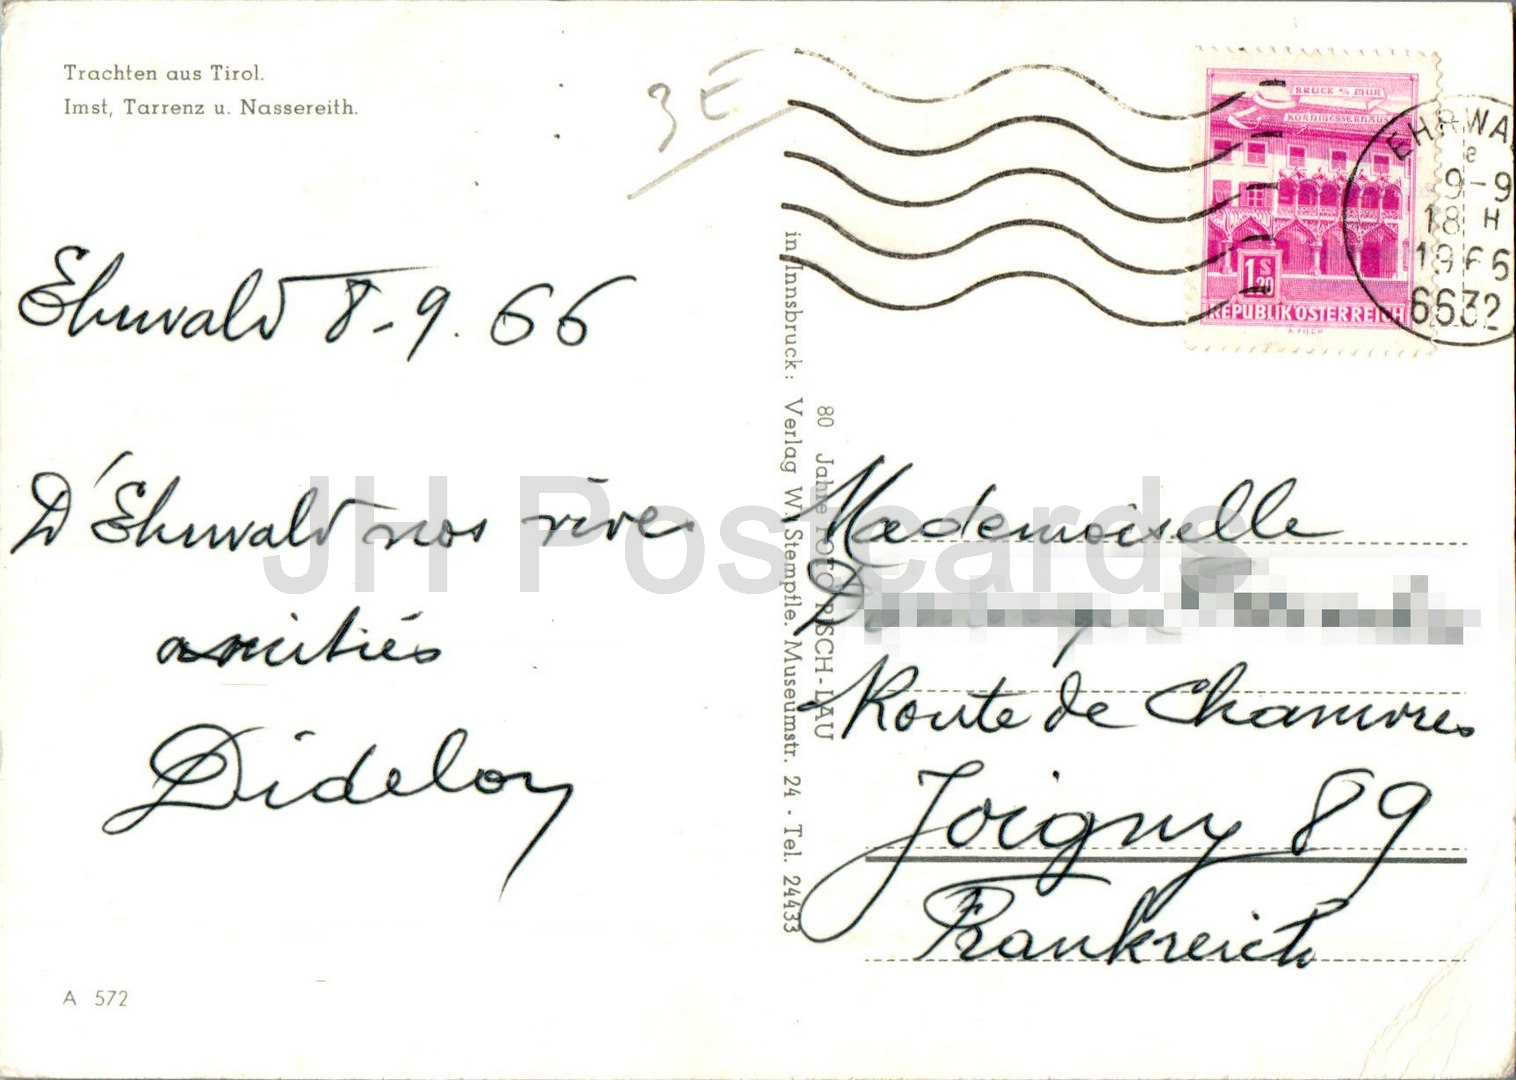 Trachten aus Tirol.
Imst, Tarrenz u. Nassereith.
3 E
Ehrwald 8-9.66
D'Ehrwald nos vives
amitiés
Dideloy
A 572
80 Jahre FOTO RISCH-LAU
in Innsbruck: Verlag W. Stempfle. Museumstr. 24 - Tel. 24433
BRUCK a/d MUR
KORNMESSERHAUS
1 S 20
REPUBLIK ÖSTERREICH
A. PILCH
EHRWA
e
9-9
18 H
1966
6632
Mademoiselle
Route de Chamvres
Joigny 89
Frankreich
JH Postcards